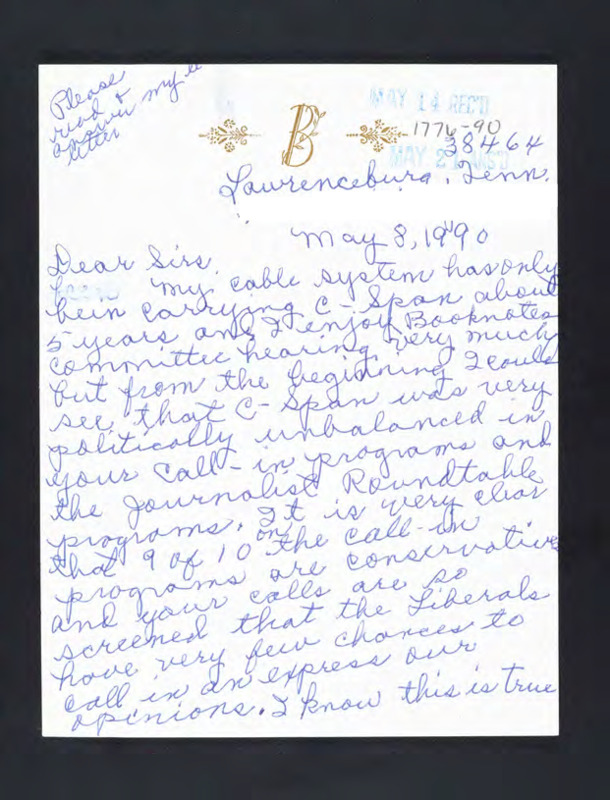 Please
read &
answer my
letter
B
MAY 14 REC'D
1776-90
38464
MAY 21
Lawrenceburg, Tenn.
May 8, 1990
Dear Sirs,
My cable system has only
been carrying C-Span about
5 years and I enjoy Booknotes
committee hearing very much
but from the beginning I could
see that C-Span was very
politically unbalanced in
your call-in programs and
the Journalist Roundtable
programs. It is very clear
that 9 of 10 on the call-in
programs are conservative
and your calls are so
screened that the Liberals
have very few chances to
call in an express our
opinions. I know this is true